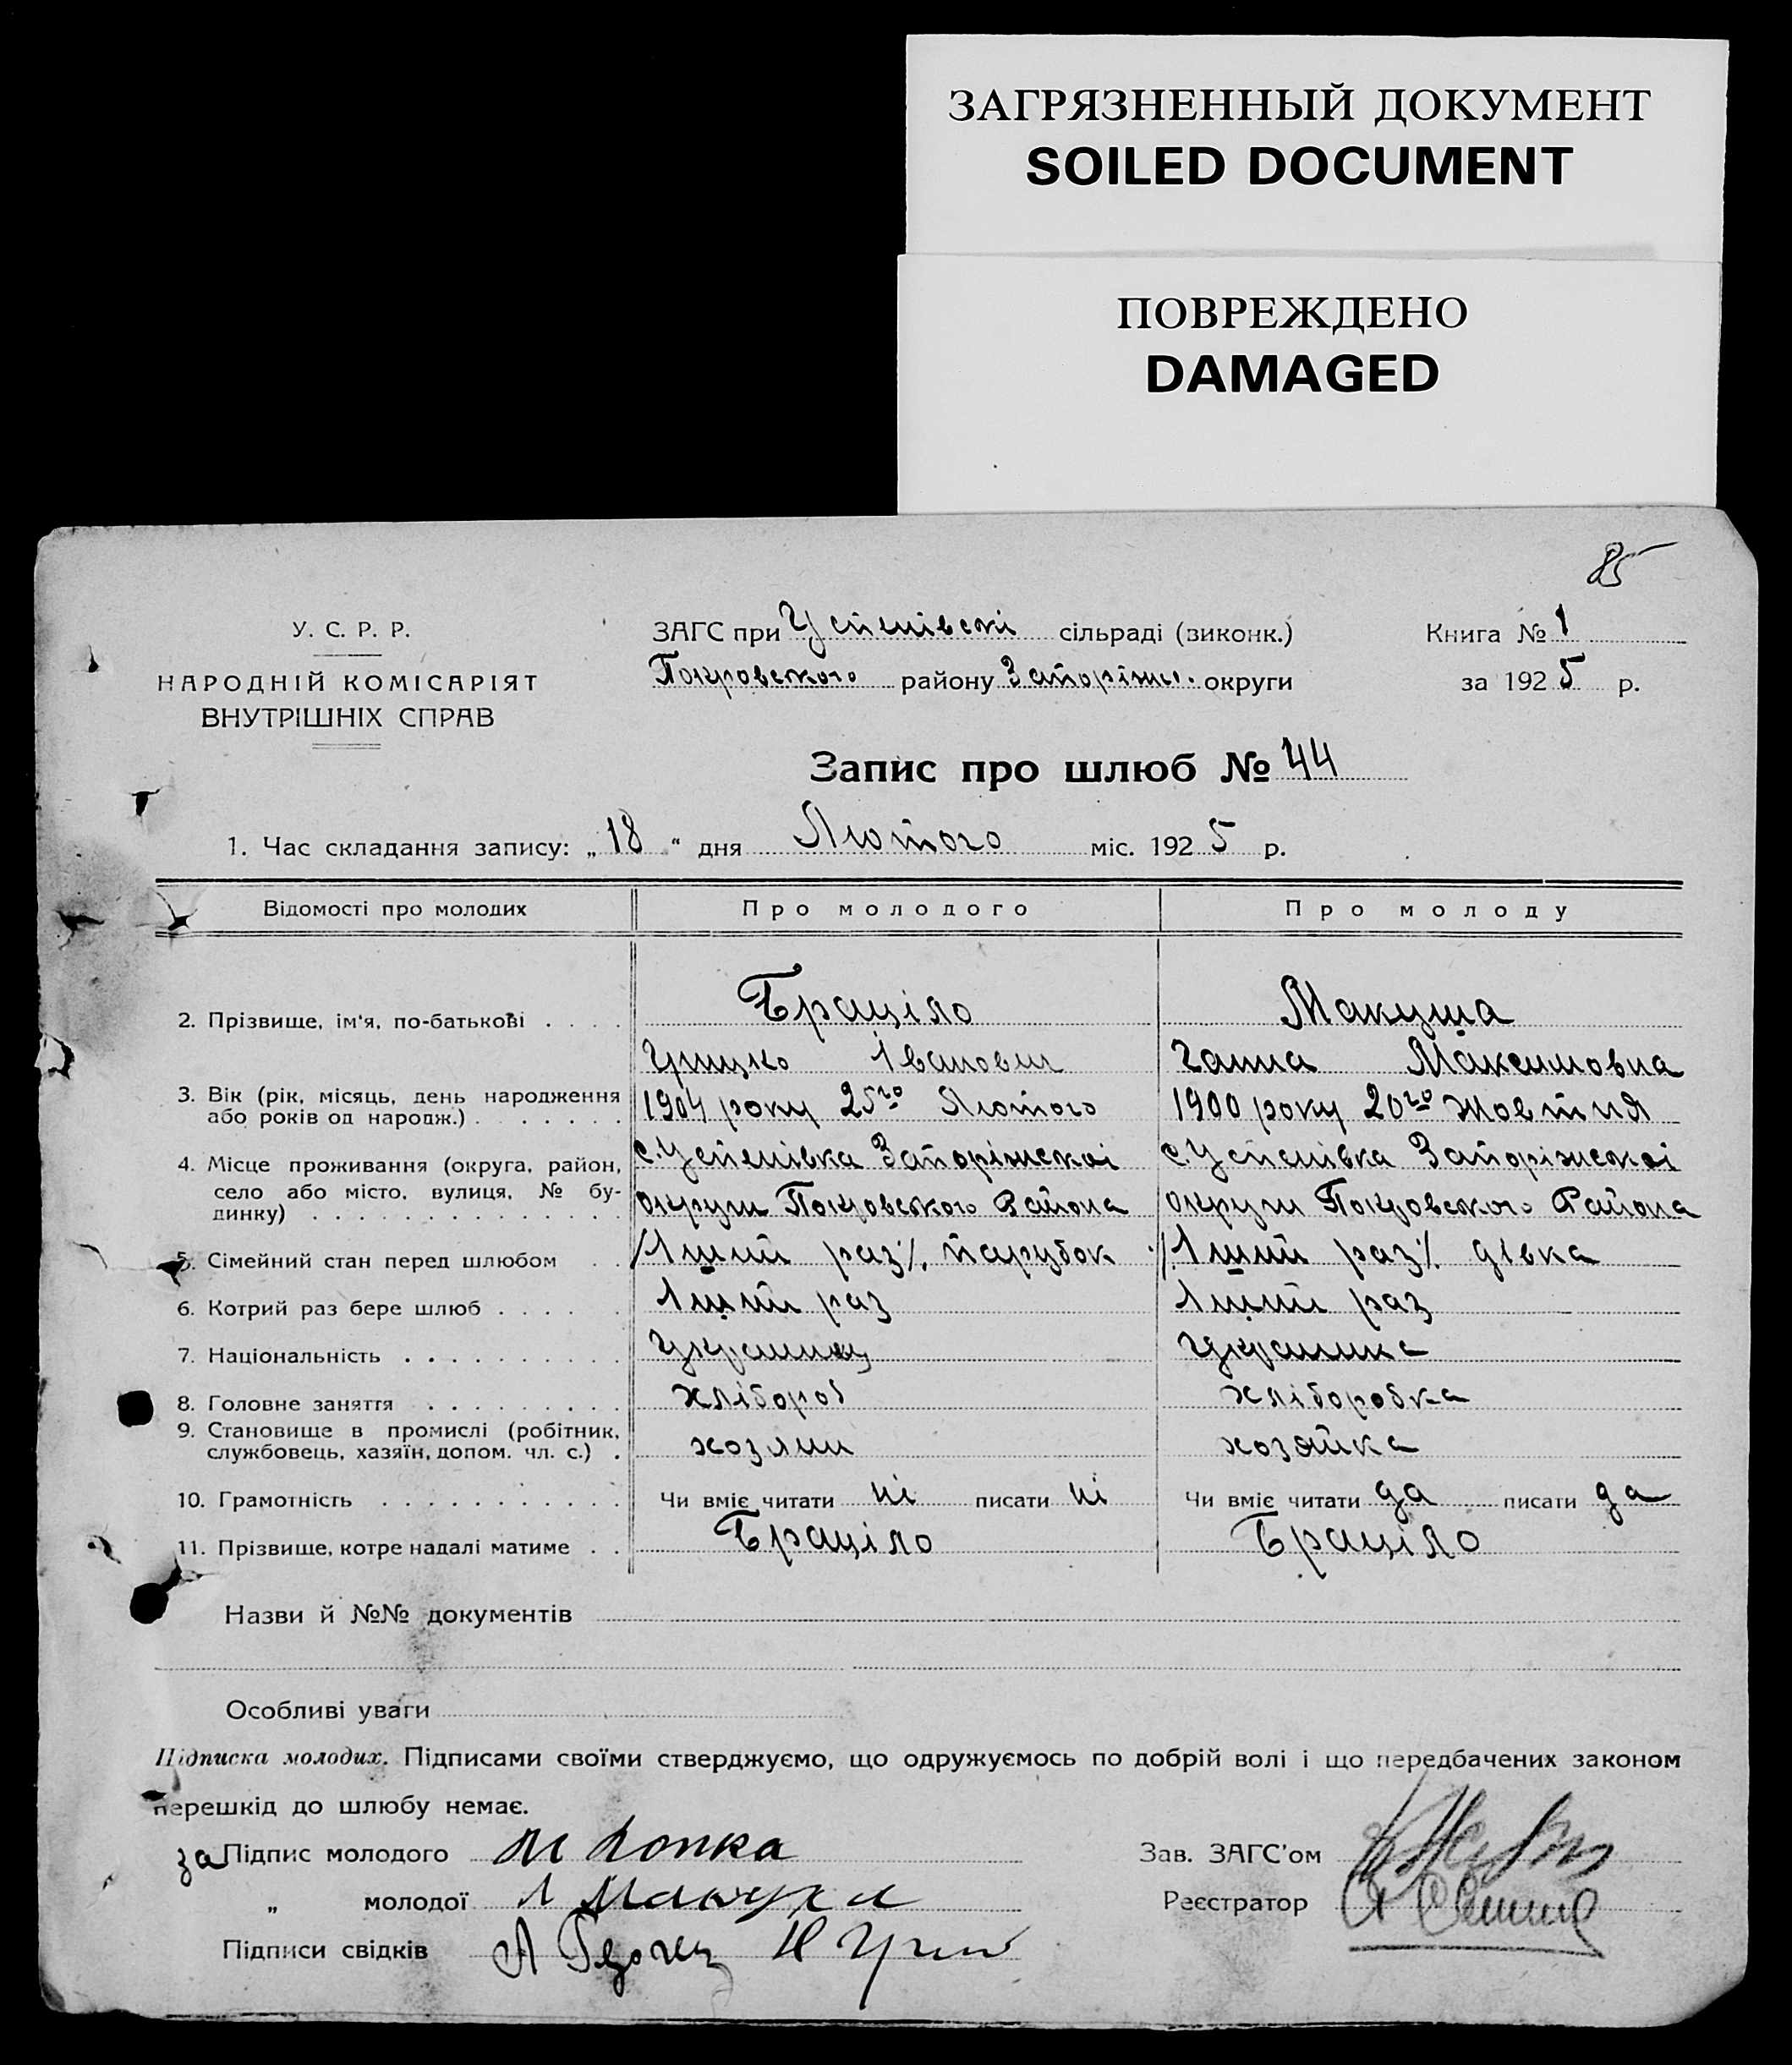 ЗАГРЯЗНЕННЫЙ ДОКУМЕНТ
SOILED DOCUMENT
ПОВРЕЖДЕНО
DAMAGED
85
У. С. Р. Р.
НАРОДНІЙ КОМІСАРІЯТ
ВНУТРІШНІХ СПРАВ
ЗАГС при Успенівскі сільраді (виконк.)
Покровського району Запоріжс. округи
Книга № 1
за 1925 р.
Запис про шлюб № 44
1. Час складання запису: „ 18 “ дня Лютого міс. 1925 р.
Відомості про молодих Про молодого Про молоду
2. Прізвище, ім'я, по-батькові . . . . Браціло Макуша
Грицко Івановичь Ганна Максимовна
3. Вік (рік, місяць, день народження або років од народж.) . . . . . . . 1904 року 25го Лютого 1900 року 20го Жовтня
4. Місце проживання (округа, район, с. Успенівка Запоріжскоі с. Успенівка Запоріжскоі
село або місто, вулиця, № бу-динку) . . . . . . . . . . . . . . округи Покровського Района округи Покровського Района
5. Сімейний стан перед шлюбом . . /1ший раз/. парубок /1ший раз/. дівка
6. Котрий раз бере шлюб . . . . . . 1ший раз 1ший раз
7. Національність . . . . . . . . . . Украинец Украинка
8. Головне заняття . . . . . . . . . хлібороб хліборобка
9. Становище в промислі (робітник, службовець, хазяїн, допом. чл. с.) . хозяин хозяйка
10. Грамотність . . . . . . . . . . . Чи вміє читати ні писати ні Чи вміє читати да писати да
11. Прізвище, котре надалі матиме . . Браціло Браціло
Назви й №№ документів
Особливі уваги
Підписка молодих. Підписами своїми стверджуємо, що одружуємось по добрій волі і що передбачених законом
перешкід до шлюбу немає.
за Підпис молодого
„ молодої
Підписи свідків
Зав. ЗАГС'ом
Реєстратор